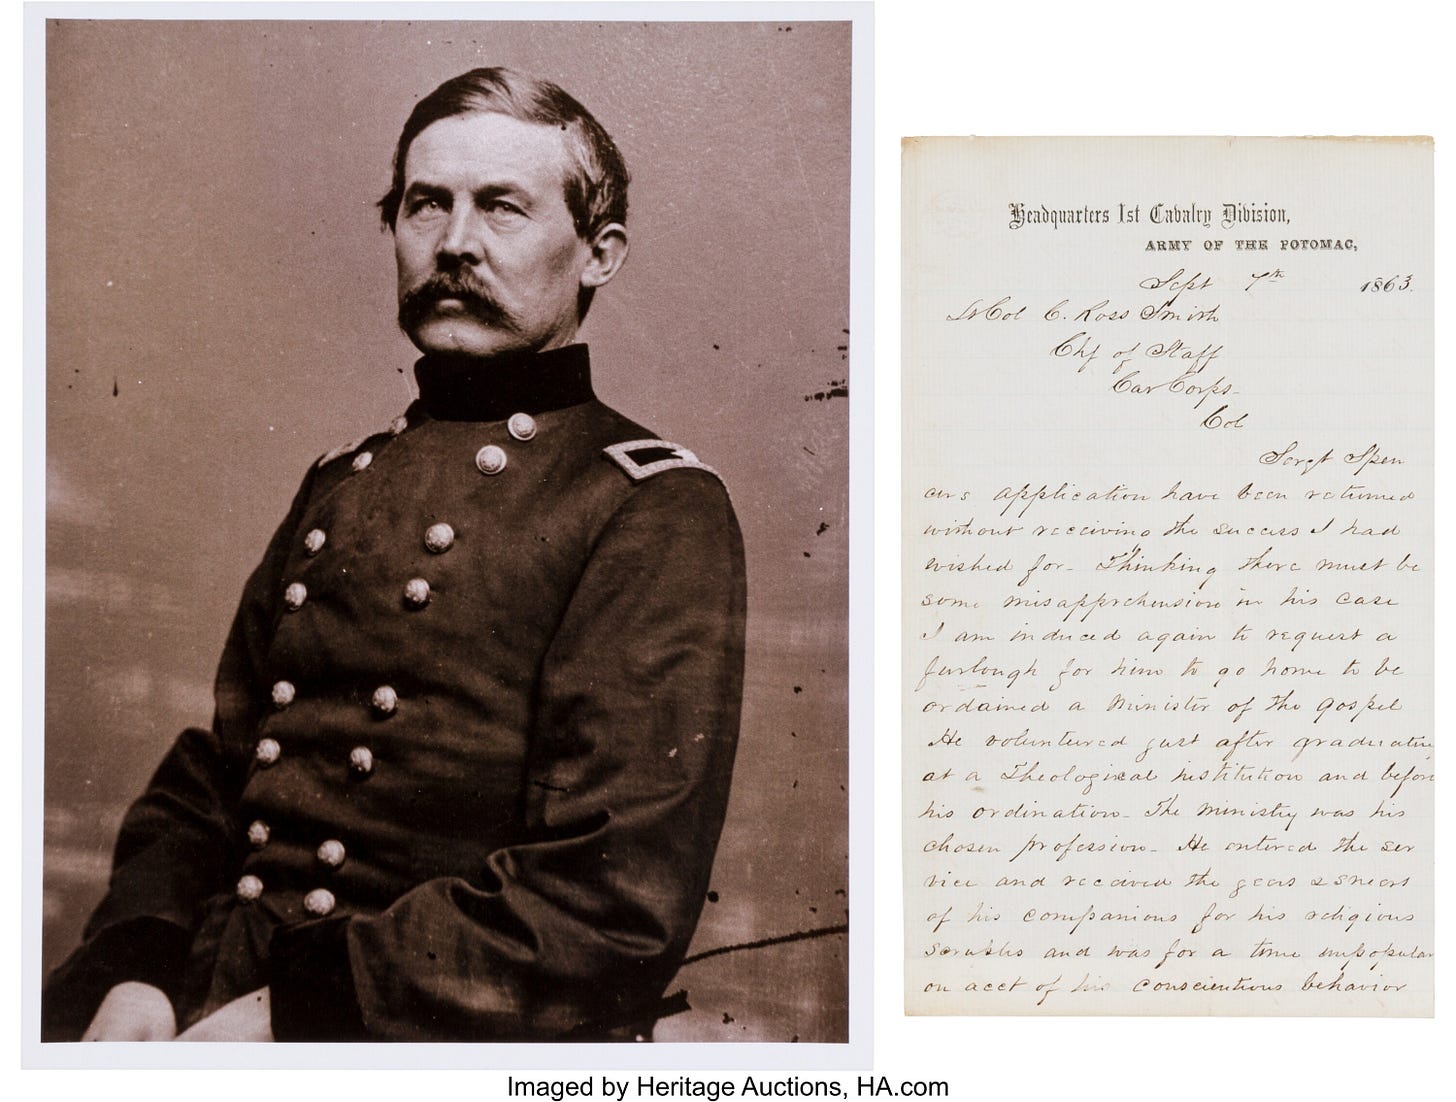 Headquarters 1st Cavalry Division,
ARMY OF THE POTOMAC,
Sept 7th 1863.
Lt Col C. Ross Smith
Chf of Staff
Cav Corps-
Col
Sergt Spen
cers application have been returned
without receiving the success I had
wished for- Thinking there must be
some misapprehension in his case
I am induced again to request a
furlough for him to go home to be
ordained a Minister of the Gospel
He volunteered just after graduating
at a Theological institution and before
his ordination- The ministry was his
chosen profession- He entered the ser
vice and received the jeers & sneers
of his companions for his religious
scruples and was for a time unpopular
on acct of his conscientious behavior
Imaged by Heritage Auctions, HA.com